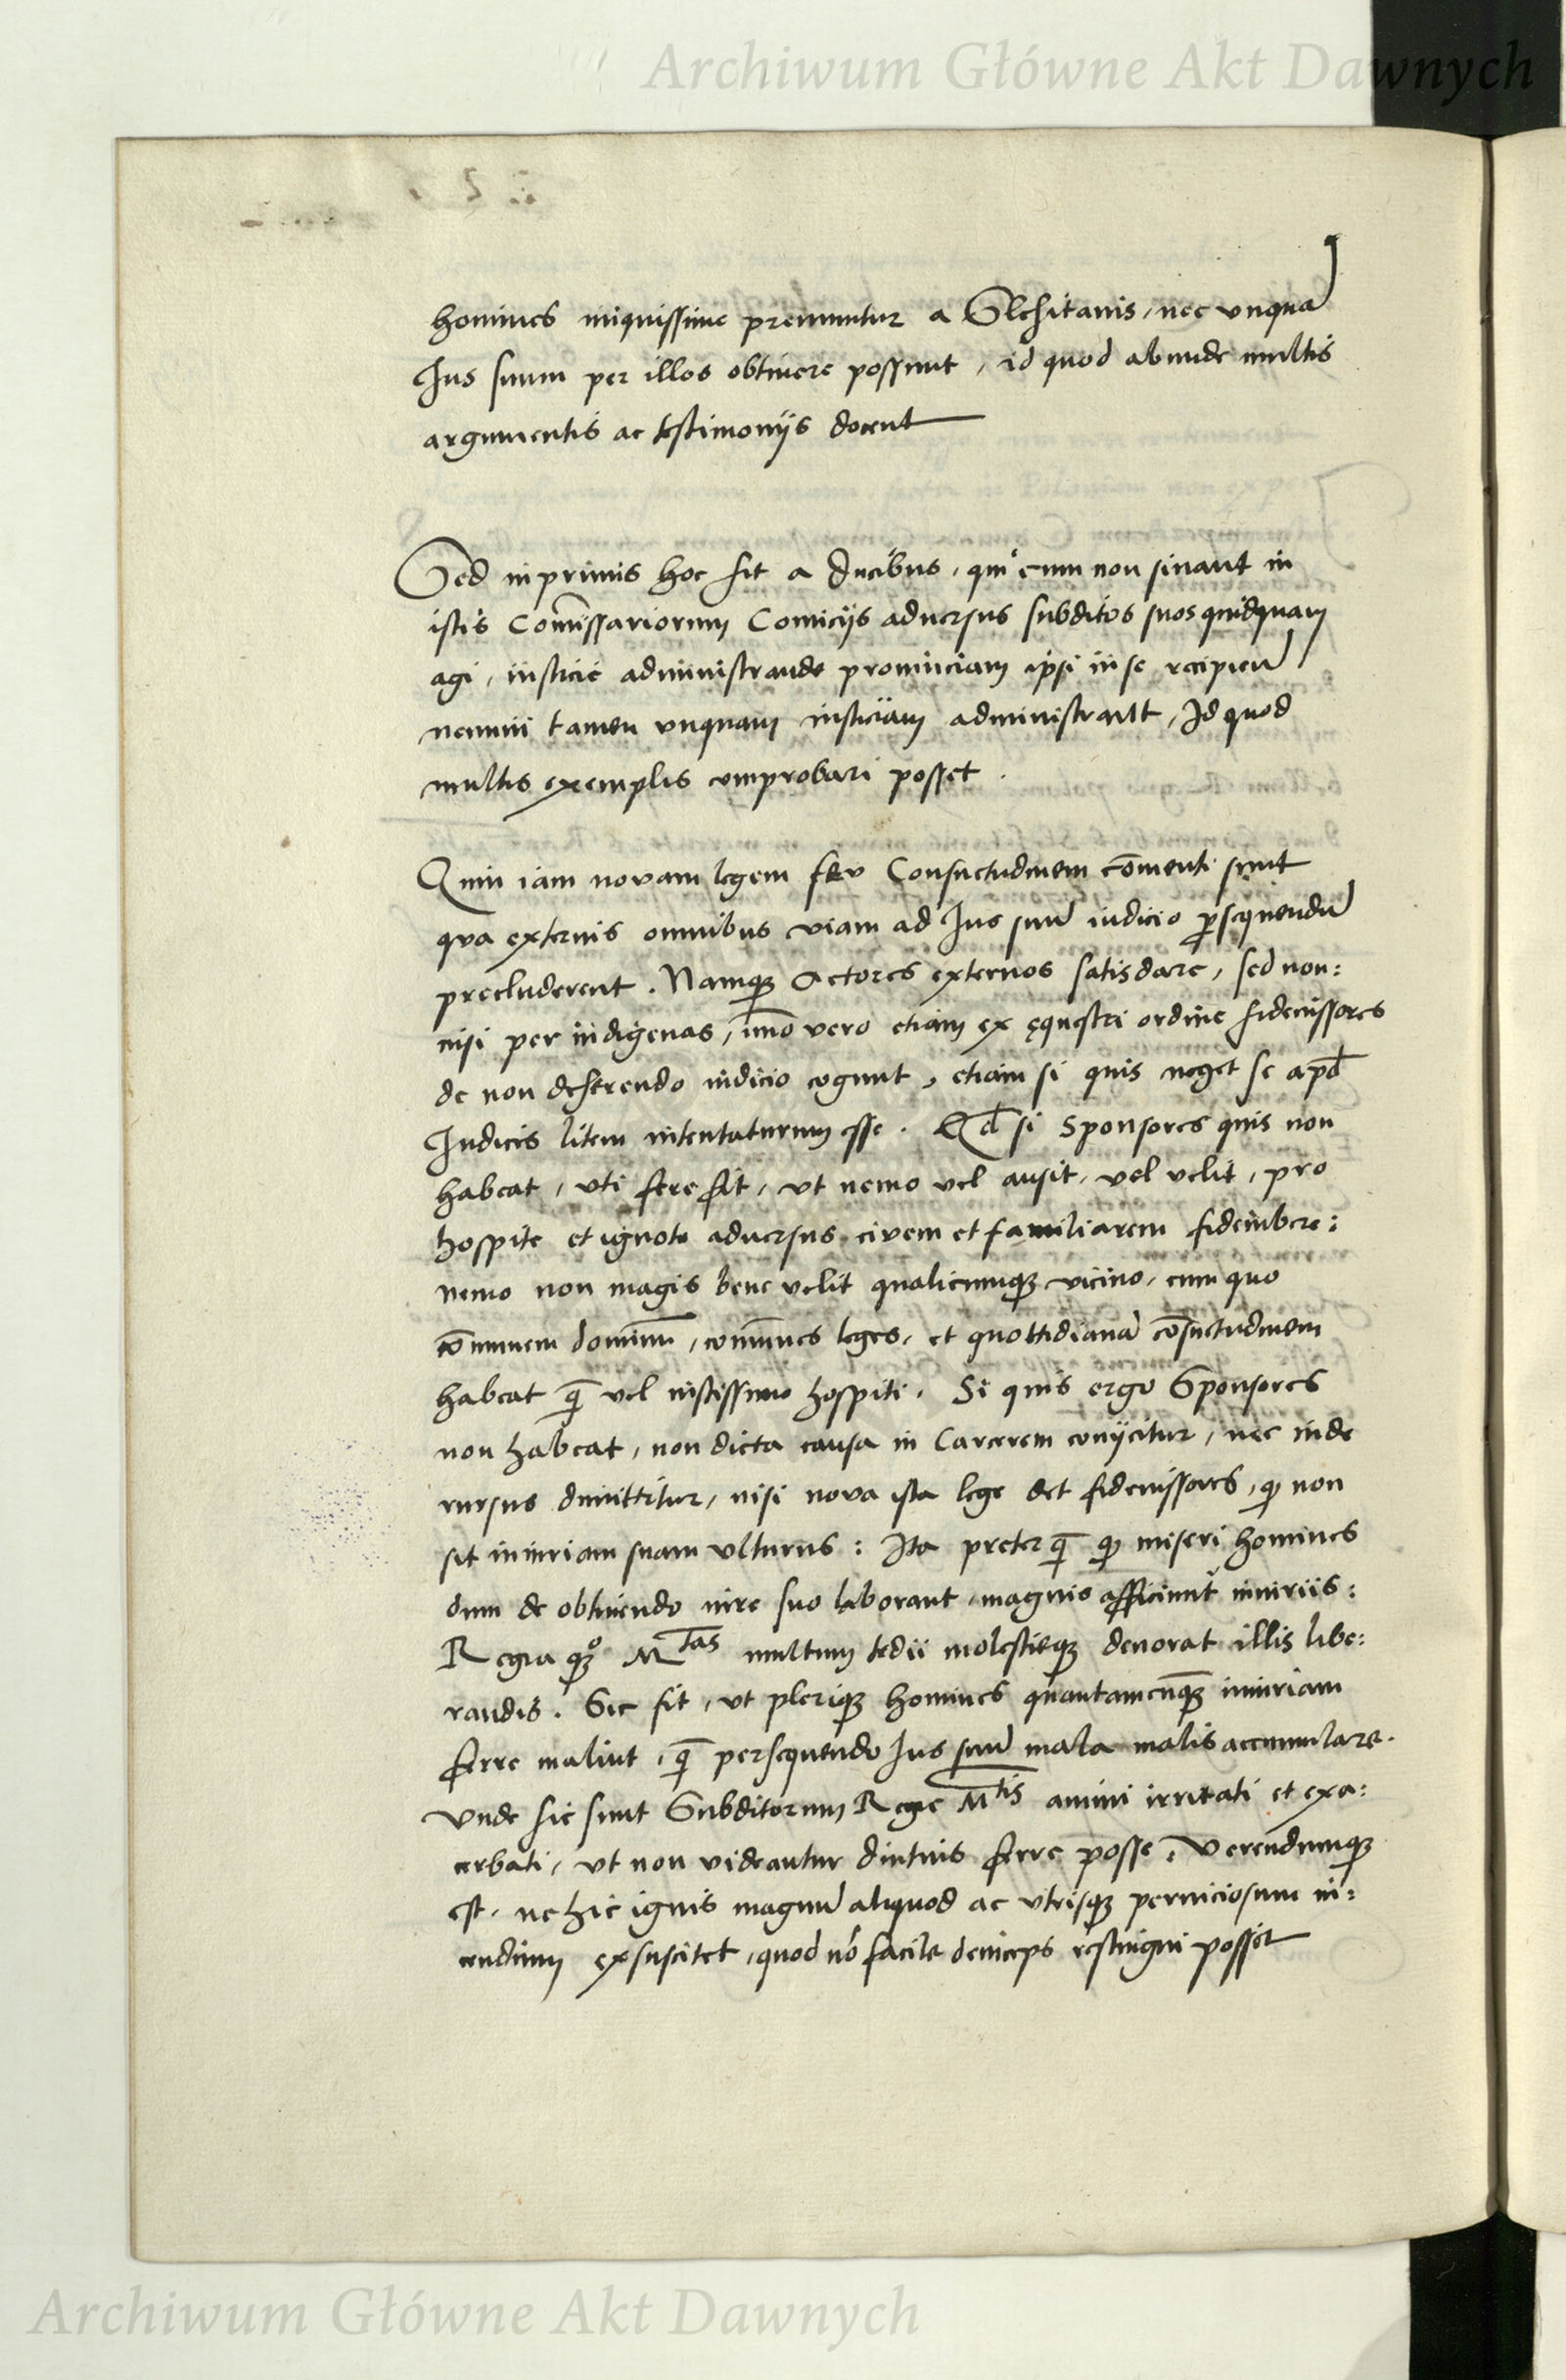 Archiwum Główne Akt Dawnych
homines iniquissime premuntur a Slesitanis, nec vnquā
Jus suum per illos obtinere possunt, id quod abunde multis
argumentis ac testimonijs docent
Sed inprimis hoc fit a Ducibus, qui cum non sinant in
istis Com̄issariorum Comicijs aduersus subditos suos quidquam
agi, iusticie administrande prouinciam ipsi in se recipiūt
nemini tamen vnquam iusticiam administrant, Id quod
multis exemplis comprobari posset.
Quin iam novam legem seu Consuetudinem cōmenti sunt
qva externis omnibus viam ad Jus suū iudicio ꝑsequendū
precluderent. Namqꝫ Actores externos satisdare, sed non:
nisi per indigenas, im̄o vero etiam ex ęquestri ordine fideiussores
de non deserendo iudicio cogunt, etiam si quis neget se apd̄
Iudicis litem intentaturum esse. Qd̄ si Sponsores quis non
habeat, vti fere fit, vt nemo vel ausit, vel velit, pro
hospite et ignoto aduersus civem et familiarem fideiubere:
nemo non magis bene velit qualicumqꝫ vicino, cum quo
cōmunem dominū, com̄unes leges, et quottidianā cōsuetudinem
habeat q̄ vel iustissimo hospiti. Si quis ergo Sponsores
non habeat, non dicta causa in Carcerem conijcitur, nec inde
rursus dimittitur, nisi nova ista lege det fideiussores, qꝫ non
sit iniuriam suam vlturus: Ita preter q̄ qꝫ miseri homines
dum de obtinendo iure suo laborant, magnis afficiunt᷑ iniuriis:
Regia qꝫo Mtas multum tedii molestieqꝫ devorat illis libe:
randis. Sic fit, vt pleriqꝫ homines quantamcūqꝫ iniuriam
ferre malint, q̄ persequendo Jus suū mala malis accumulare.
Vnde sic sunt Subditorum Regie Mtis animi irritati et exa:
cerbati, vt non videantur diutius ferre posse, Verendumqꝫ
est, ne hic ignis magnū aliquod ac vtrisqꝫ perniciosum in:
cendium exsuscitet, quod nō facile deinceps restingui posset
Archiwum Główne Akt Dawnych